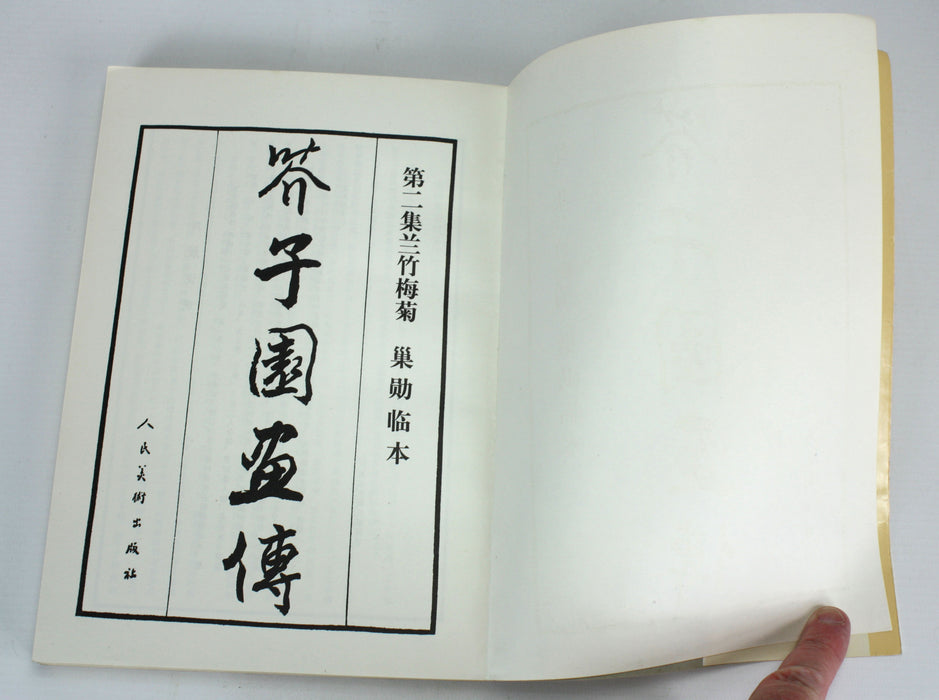 第二集兰竹梅菊 巢勋临本
芥子園畫傳
人民美術出版社